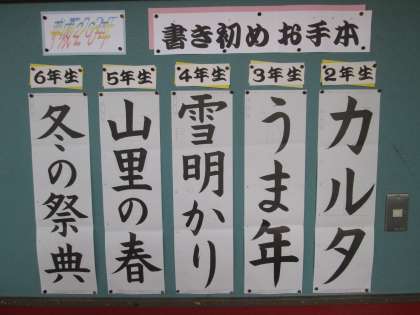 平成26年
書き初めお手本
6年生
5年生
4年生
3年生
2年生
冬の祭典
山里の春
雪明かり
うま年
カルタ